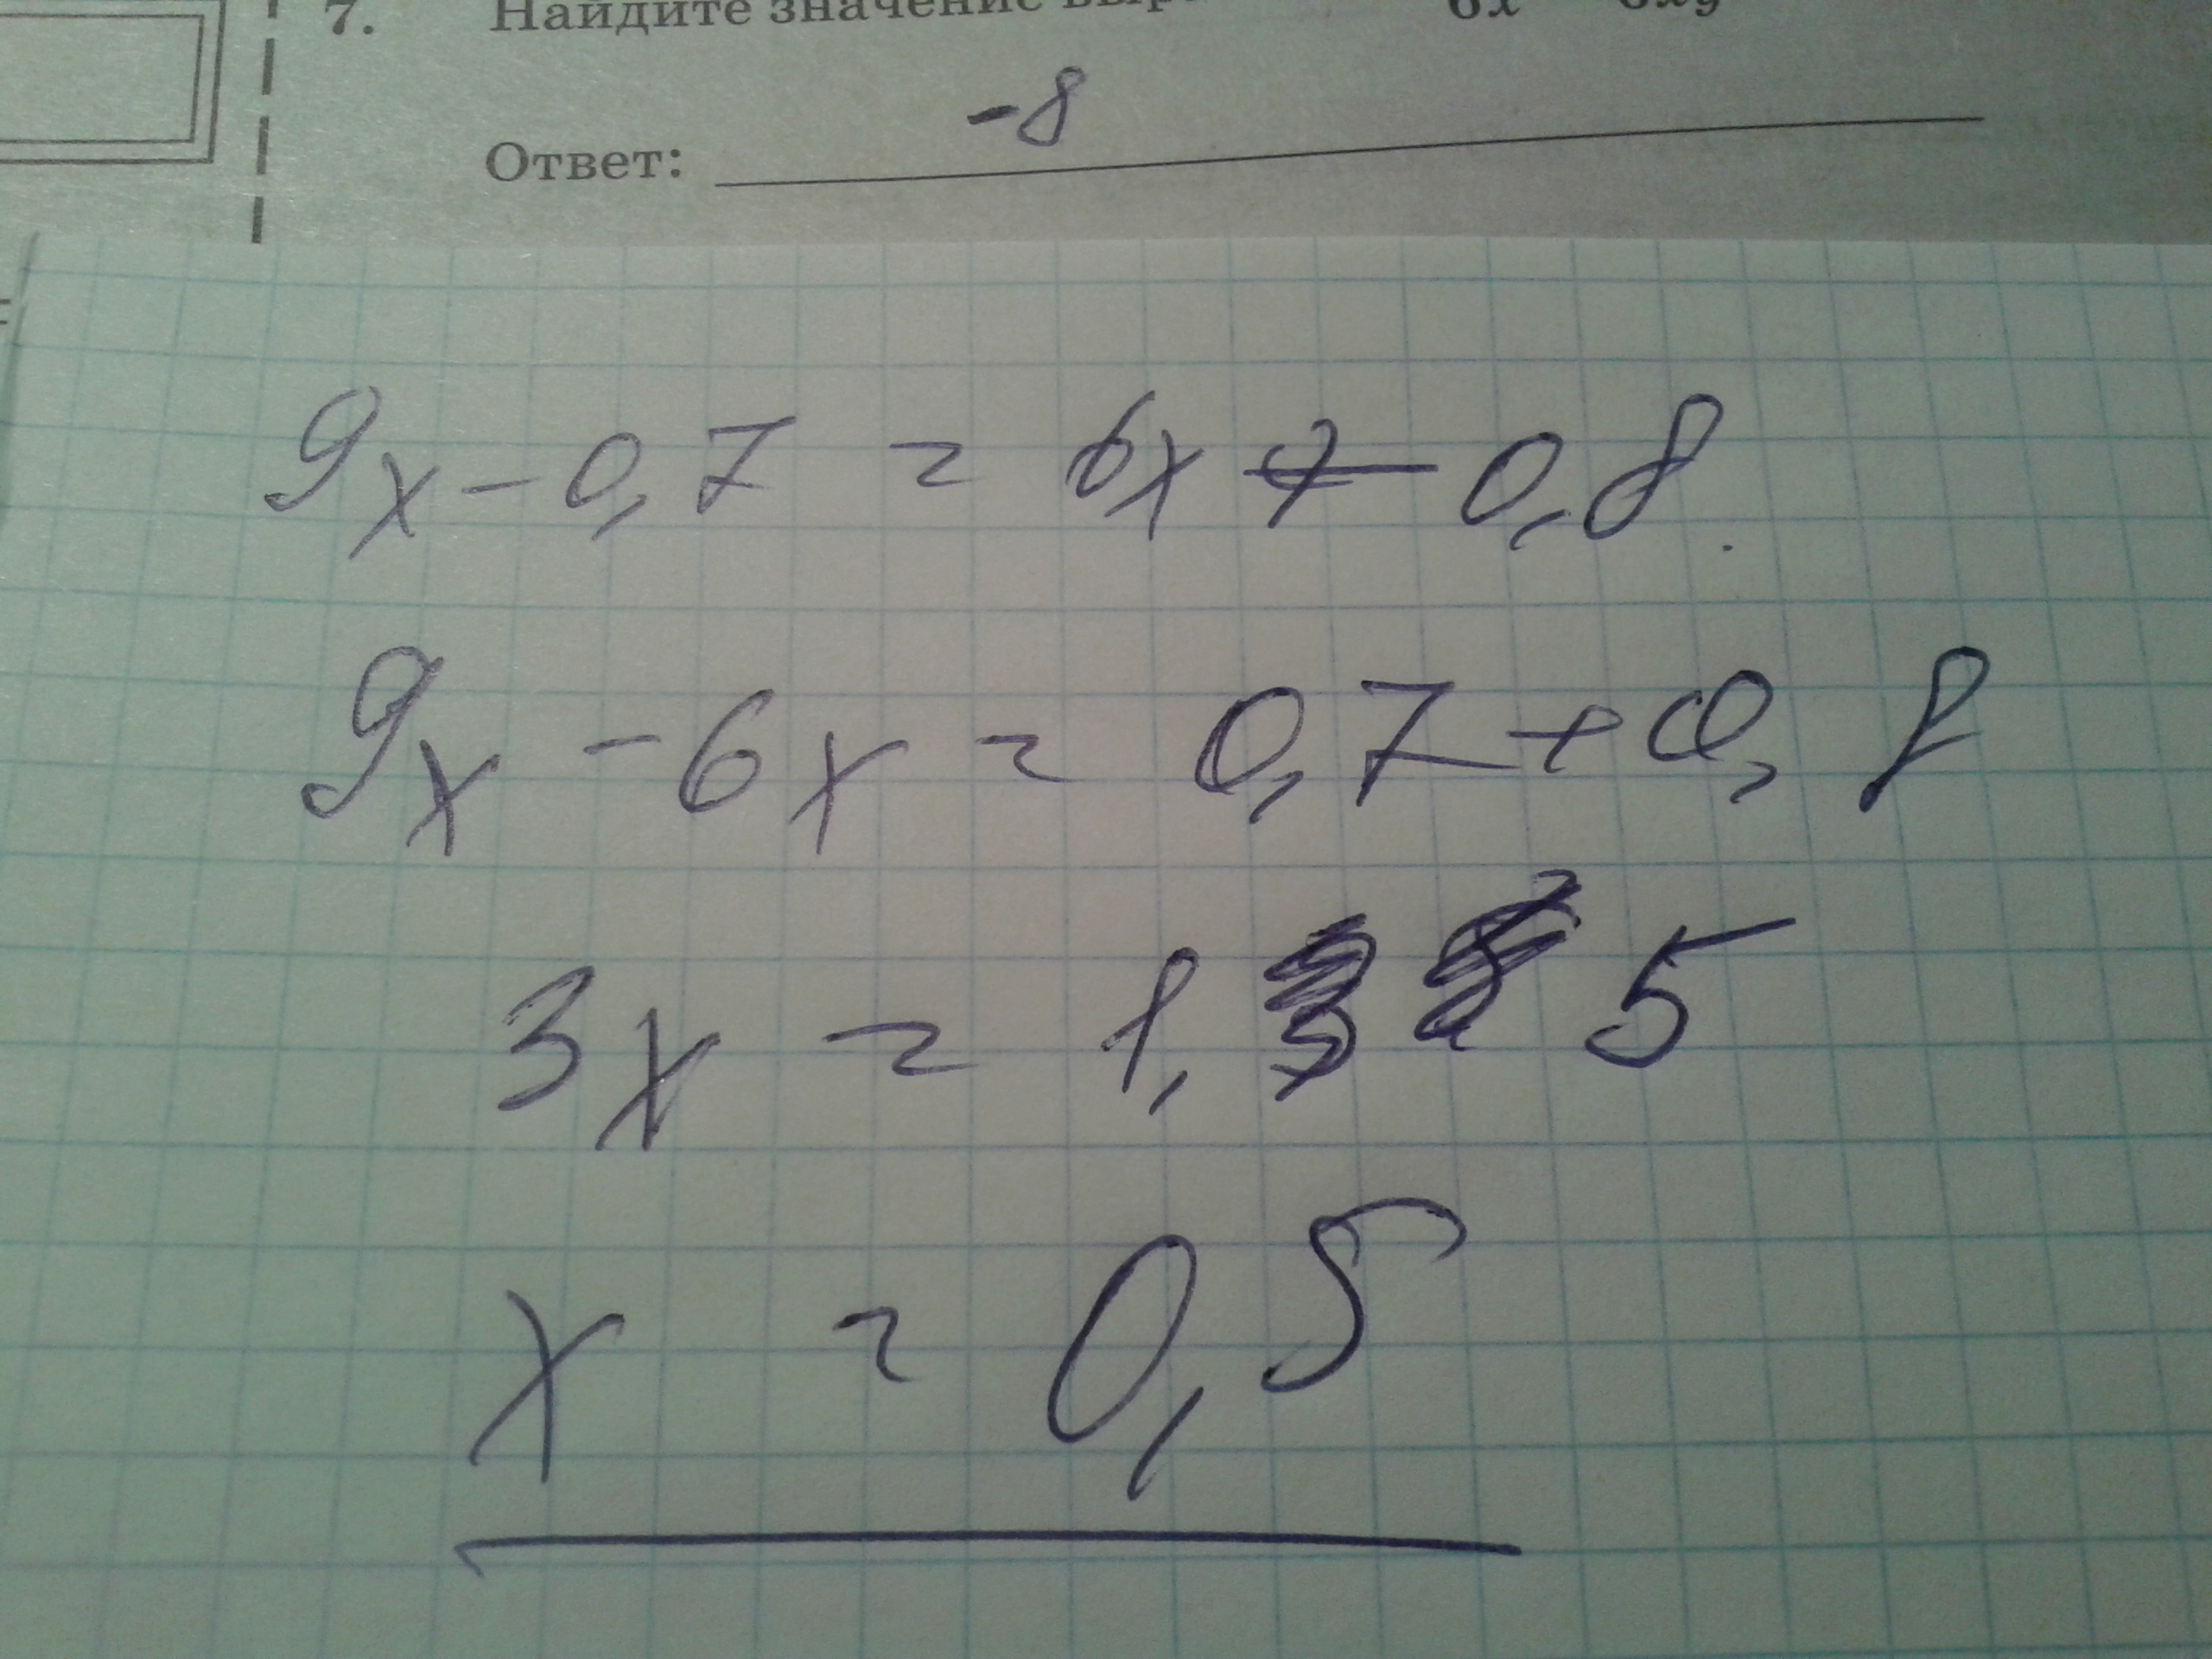 7. Найдите значение
-8
Ответ:
9x - 0,7 = 6x + 0,8
9x - 6x = 0,7 + 0,8
3x = 1,5
x = 0,5